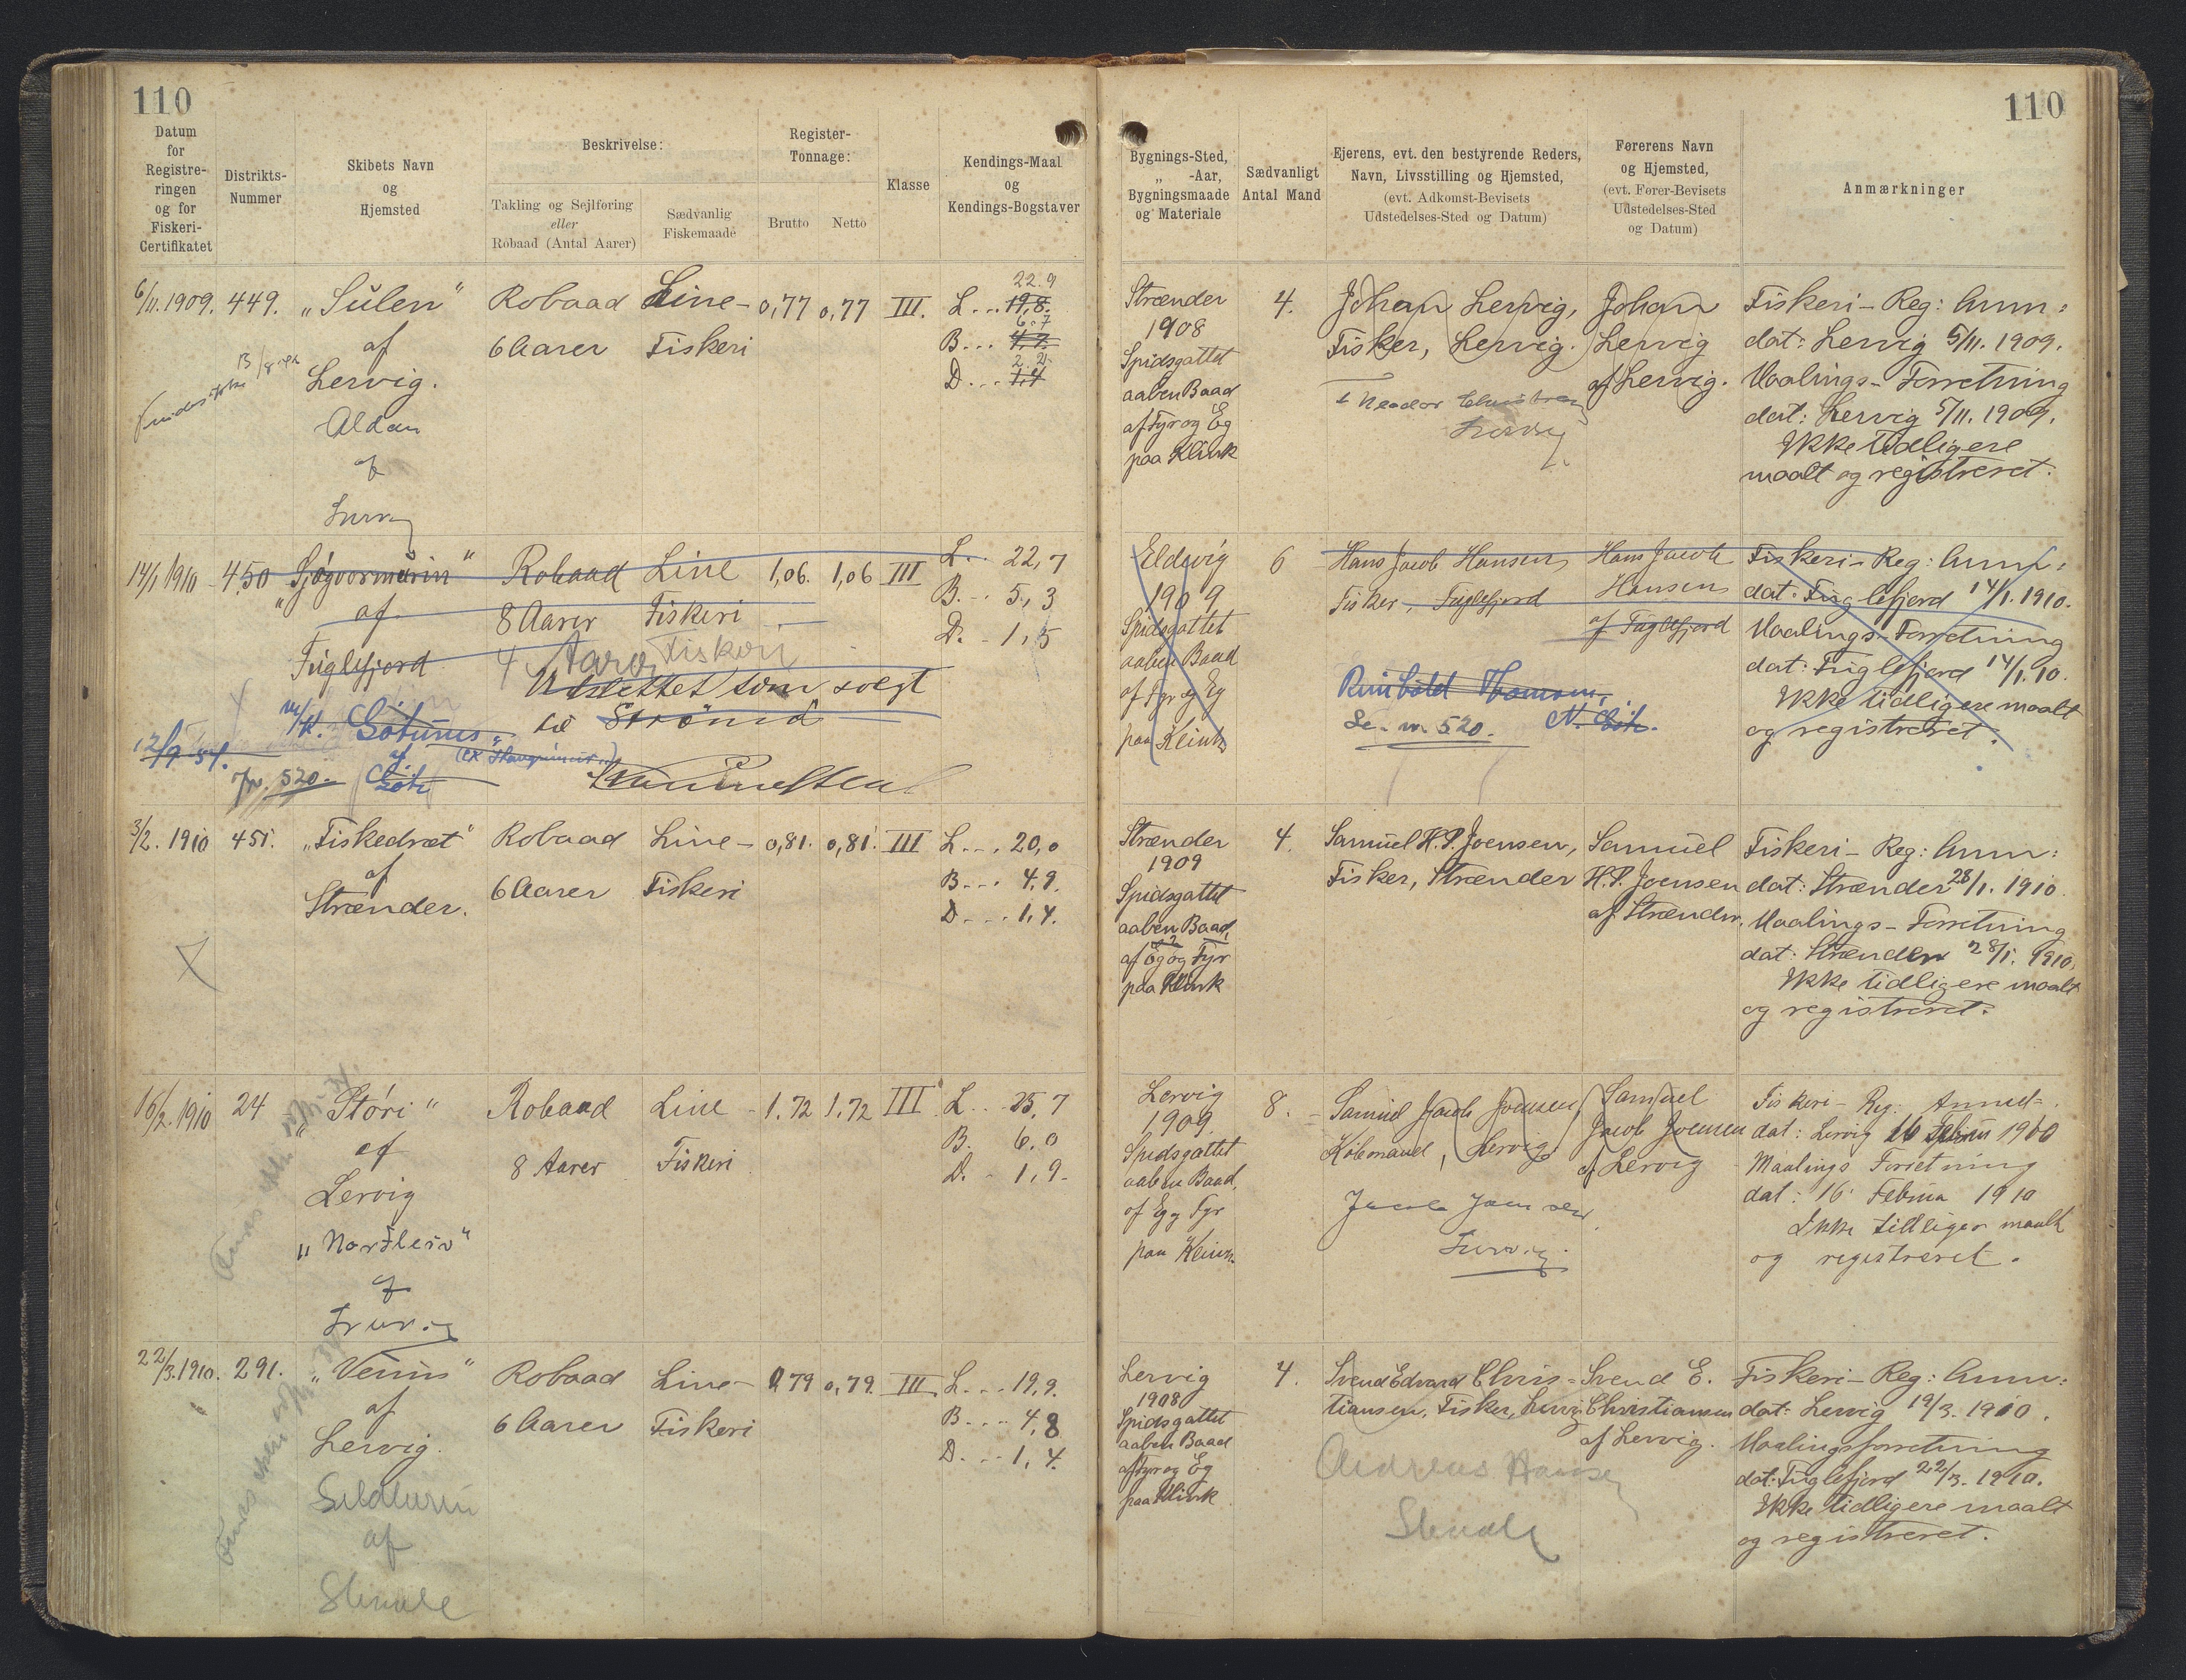 110
Datum
for
Registre-
ringen
og for
Fiskeri-
Certifikatet
Distrikts-
Nummer
Skibets Navn
og
Hjemsted
Beskrivelse:
Takling og Sejlføring
eller
Robaad (Antal Aarer)
Sædvanlig
Fiskemaade
Register-
Tonnage:
Brutto Netto
Klasse
Kendings-Maal
og
Kendings-Bogstaver
6/11. 1909. 449. „Súlen“ Robaad Line- 0,77 0,77 III. L... 19,8. 22.9
af 6 Aarer Fiskeri B... 6.7
Lervig. D... 1,4 2.2
Aldan
af
14/1 1910 450 Robaad Line 1,06. 1,06 III L.. 22,7
af 8 Aarer Fiskeri B... 5,3
Fuglefjord D. - 1,5
4 Aarer Fiskeri
Udslettet som solgt
til Strømø
„Gøtunes“
af
Gøte
12/9 34.
nr. 520.
3/2. 1910 451. „Fiskedræt“ Robaad Line- 0,81. 0,81. III L... 20,0
af 6 Aarer Fiskeri B... 4,9.
Strænder. D... 1,4.
16/2. 1910 24 „Støri“ Robaad Line - 1.72 1,72 III L... 25,7
af 8 Aarer Fiskeri B. 6,0
Lervig D. - 1,9.
„Nordleis“
af
22/3. 1910. 291. „Venus“ Robaad Line- 0,79 0,79. III L... 19,9.
af 6 Aarer Fiskeri B... 4,8
Lervig. D... 1,4.
af
110
Bygnings-Sted,
„ -Aar,
Bygningsmaade
og Materiale
Sædvanligt
Antal Mand
Ejerens, evt. den bestyrende Reders,
Navn, Livsstilling og Hjemsted,
(evt. Adkomst-Bevisets
Udstedelses-Sted og Datum)
Førerens Navn
og Hjemsted,
(evt. Fører-Bevisets
Udstedelses-Sted
og Datum)
Anmærkninger
Strænder 4. Johan Lervig, Johan Fiskeri-Reg: Anm:
1908 Fisker, Lervig. Lervig dat: Lervig 5/11. 1909.
Spidsgattet af Lervig. Maalings-Forretning
aaben Baad dat: Lervig 5/11. 1909.
af Fyr og Eg Ikke tidligere
paa Klink maalt og registreret.
Eldevig 6 Hans Jacob Hansen Hans Jacob Fiskeri-Reg: Anm:
1909 Fisker, Fuglefjord Hansen dat: Fuglefjord 14/1. 1910.
Spidsgattet af Fuglefjord Maalings-Forretning
aaben Baad dat: Fuglefjord 14/1. 10.
af Fyr og Eg Ikke tidligere maalt
paa Klink og registreret.
Se. nr. 520. N. Gøte.
Strænder 4. Samuel H. P. Joensen, Samuel Fiskeri-Reg: Anm:
1909 Fisker, Strænder H. P. Joensen dat: Strænder 28/1. 1910
Spidsgattet af Strænder. Maalings-Forretning
aaben Baad, dat: Strænder 28/1. 1910,
af Eg og Fyr Ikke tidligere maalt
paa Klink og registreret.
Lervig 8. Samuel Jacob Joensen, Samuel Fiskeri-Reg. Anmel-
1909 Købmand, Lervig Jacob Joensen dat: Lervig 16 1910
Spidsgattet af Lervig Maalings Forretning
aaben Baad, dat: 16 Februa 1910
af Eg og Fyr Ikke tidligere maalt
paa Klink. og registreret.
Jacob Joensen
Lervig 4. Svend Edvard Chris- Svend E. Fiskeri-Reg: Anm:
1908 tiansen, Fisker, Lervig Christiansen dat: Lervig 19/3. 1910.
Spidsgattet af Lervig. Maalingsforretning
aaben Baad dat: Fuglefjord 22/3. 1910.
af Fyr og Eg Ikke tidligere maalt
paa Klink og registreret.
Andreas Hansen